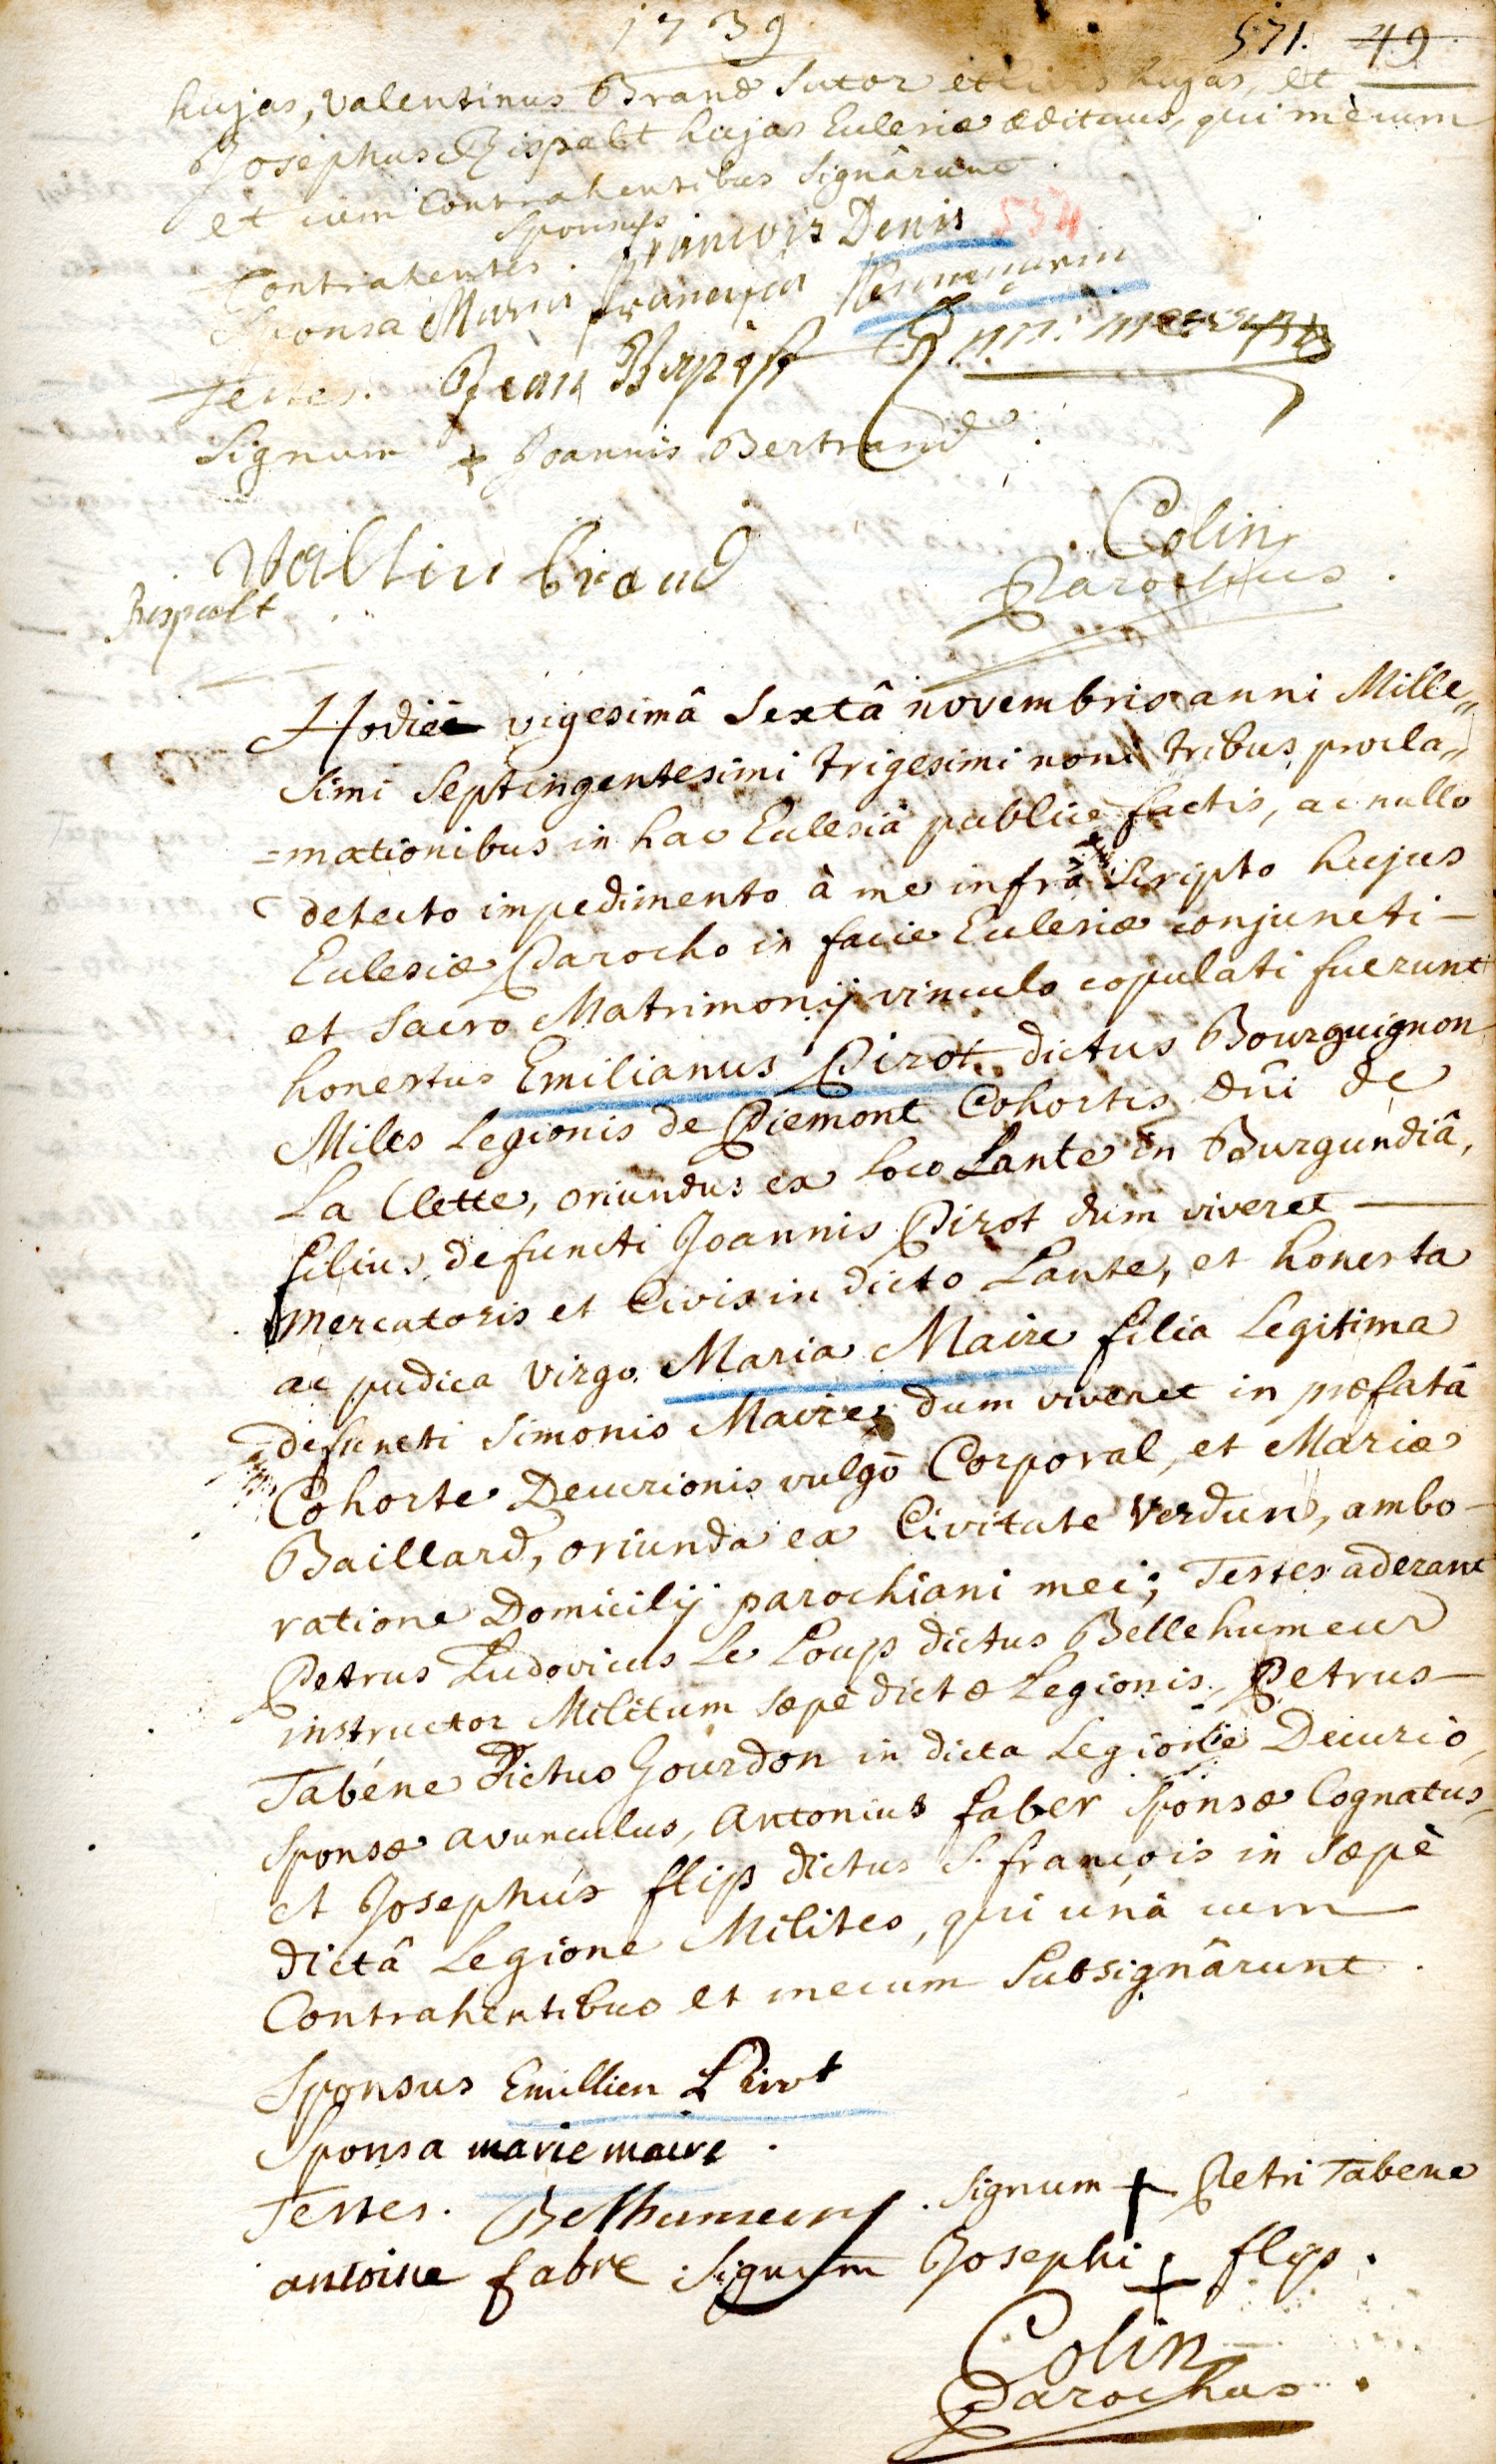 1739
571. 49
hujas, Valentinus Brand Sutor et Civis hujas, et
Josephus Rispalt hujas Eclesiæ ædituus, qui mècum
et cum Contrahentibus Signârunt.
Sponsus
Contrahentes. francois Denis 554
Sponsa Maria francisca
Testes. Jean Baptist
Signum + Joannis Bertrand
Valtin braud
Colin
Parochus.
Rispalt
Hodie vigesimâ Sextâ novembris anni Mille„
Simi Septingentesimi trigesimi noni tribus procla„
=mationibus in hac Eclesiâ publice factis, ac nullo
detecto impedimento à me infrà Scripto hujus
Eclesiæ Parocho in facie Eclesiæ conjuncti –
et Sacro Matrimonij vinculo copulati fuerunt
honestus Emilianus Pirot dictus Bourguignon
Miles Legionis de Piemont Cohortis Dñi de
La Clette, oriundus ex loco Lante in Burgundiâ,
filius defuncti Joannis Pirot dum viveret —
Mercatoris et Civis in dicto Lante, et honesta
ac pudica Virgo Maria Maire filia Legitima
defuncti Simonis Maire dum viveret in præfatâ
Cohorte Decurionis vulgò Corporal, et Mariæ
Baillard, oriunda ex Civitate Verdun, ambo –
ratione Domicilij parochiani mei; Testes aderant
Petrus Ludovicus Le Loup dictus Bellehumeur
instructor Militum sæpè dictæ Legionis, Petrus –
Tabéne Dictus Gourdon in dicta Legione Decurio,
Sponsæ avunculus, Antonius faber Sponsæ Cognatus,
et Josephus flip dictus S. françois in sæpè
dictâ Legione Milites, qui unà cum
Contrahentibus et mecum Subsignârunt.
Sponsus Emillien Pirot
Sponsa marie maire.
Testes. Belhumeur. Signum + Petri Tabene
antoine fabre Signum Josephi + flip.
Colin
Parochus.